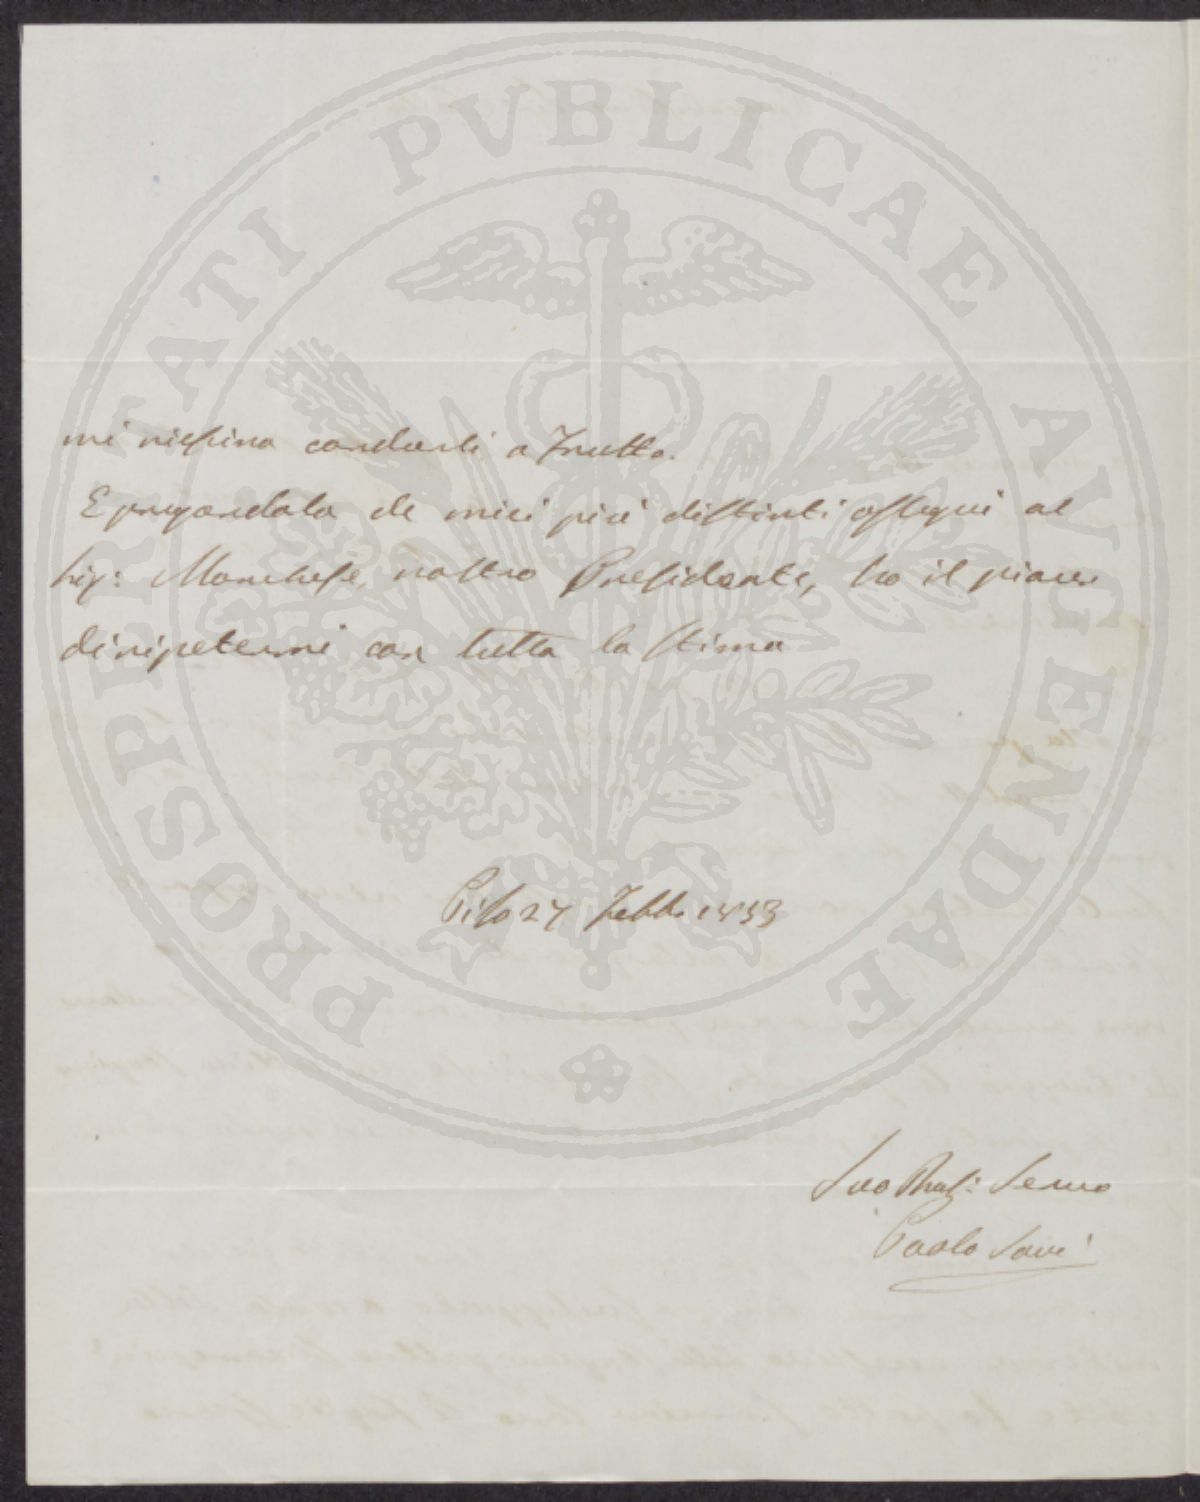 PROSPERITATI PVBLICAE AVGENDAE
mi riesſino condurli a Frutto.
E pregandola de miei più diſtinti oſsequi al
Sig: Marcheſe, noſtro Preſidente, ho il piacer
di ripetermi con tutta la ſtima
Piſa 27 Febb. 1853
Suo
Servo
Paolo Savi